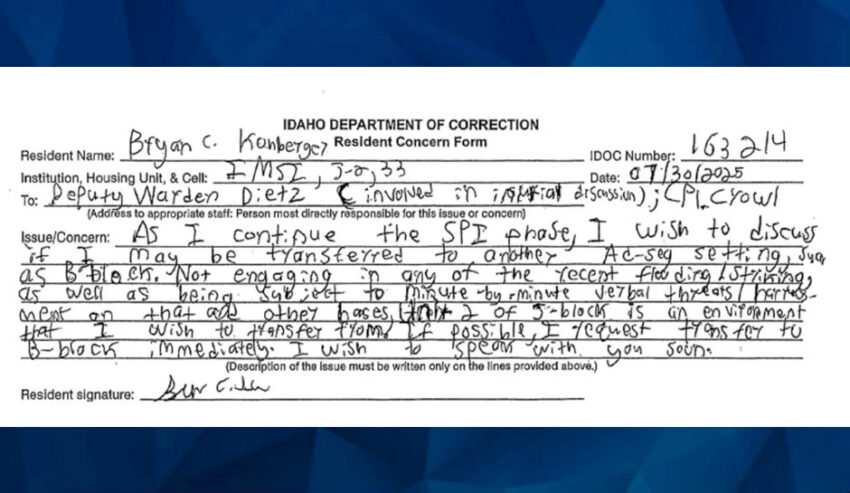 IDAHO DEPARTMENT OF CORRECTION
Resident Concern Form
Resident Name: Bryan C. Kohberger IDOC Number: 163214
Institution, Housing Unit, & Cell: IMSI, J-2, 33 Date: 07/30/2025
To: Deputy Warden Dietz (involved in initial discussion); CPL Crowl
(Address to appropriate staff: Person most directly responsible for this issue or concern)
Issue/Concern: As I continue the SPI phase, I wish to discuss
if I may be transferred to another Ad-seg setting, such
as B-block. Not engaging in any of the recent flooding/striking,
as well as being subject to minute-by-minute verbal threats/harass-
ment on that and other bases, 2 of J-block is an environment
that I wish to transfer from. If possible, I request transfer to
B-block immediately. I wish to speak with you soon.
(Description of the issue must be written only on the lines provided above.)
Resident signature: